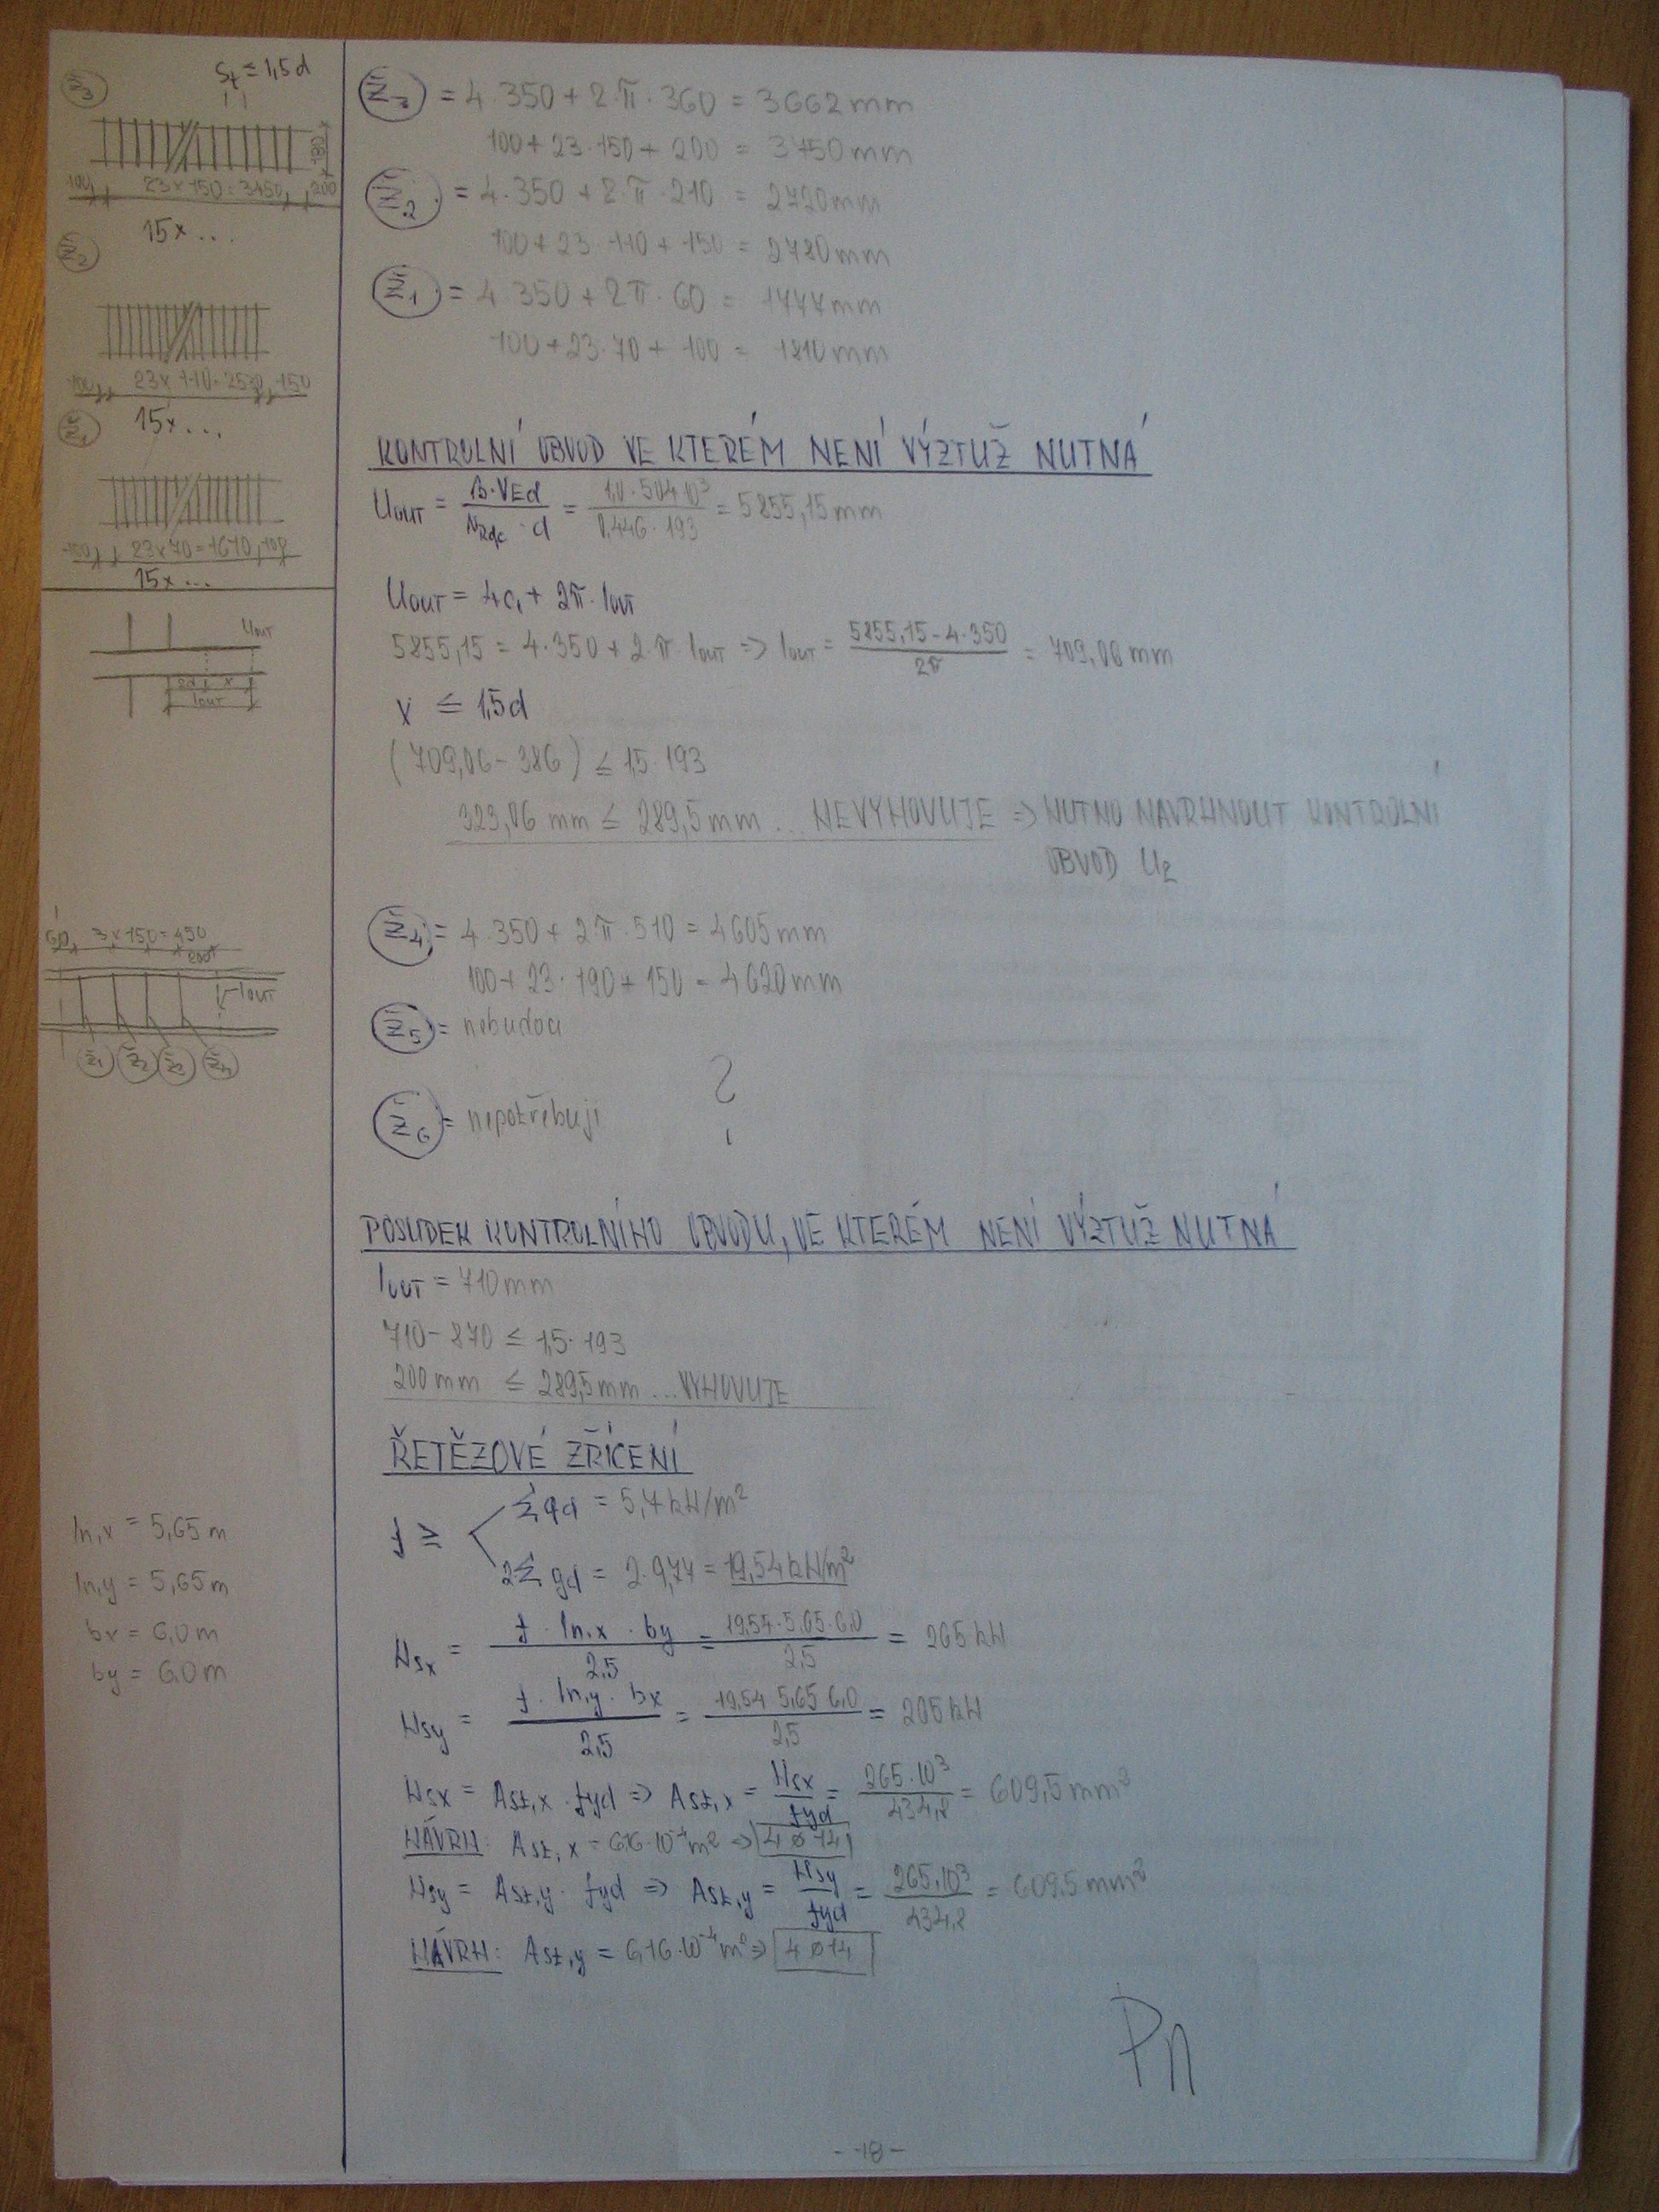 Ž3
St ≤ 1,5d
180
100 23×150=3450 200
15× ...
Ž2
100 23×110=2530 150
15× ...
Ž1
100 23×70=1610 100
15× ...
UOUT
2d x
lOUT
60 3×150=450
200
lOUT
Ž1 Ž2 Ž3 Ž4
ln,x = 5,65 m
ln,y = 5,65 m
bx = 6,0 m
by = 6,0 m
Ž3 = 4·350 + 2·π·360 = 3662 mm
100 + 23·150 + 200 = 3750 mm
Ž2 = 4·350 + 2·π·210 = 2720 mm
100 + 23·110 + 150 = 2780 mm
Ž1 = 4·350 + 2π·60 = 1777 mm
100 + 23·70 + 100 = 1810 mm
KONTROLNÍ OBVOD VE KTERÉM NENÍ VÝZTUŽ NUTNÁ
UOUT = β·VEd / νRdc·d = 1,0·504·10³ / 0,446·193 = 5855,15 mm
UOUT = 4c1 + 2π·lOUT
5855,15 = 4·350 + 2·π·lOUT => lOUT = 5855,15 - 4·350 / 2π = 709,06 mm
x ≤ 1,5d
(709,06 - 386) ≤ 1,5·193
323,06 mm ≤ 289,5 mm ... NEVYHOVUJE => NUTNO NAVRHNOUT KONTROLNÍ
OBVOD U2
Ž4 = 4·350 + 2π·510 = 4605 mm
100 + 23·190 + 150 = 4620 mm
Ž5 = nebudou
?
Ž6 = nepotřebuji
POSUDEK KONTROLNÍHO OBVODU, VE KTERÉM NENÍ VÝZTUŽ NUTNÁ
lOUT = 710 mm
710 - 870 ≤ 1,5·193
200 mm ≤ 289,5 mm ... VYHOVUJE
ŘETĚZOVÉ ZŘÍCENÍ
f ≥ Σqd = 5,7 kN/m²
2Σgd = 2·9,77 = 19,54 kN/m²
Nsx = f·ln,x·by / 2,5 = 19,54·5,65·6,0 / 2,5 = 265 kN
Nsy = f·ln,y·bx / 2,5 = 19,54·5,65·6,0 / 2,5 = 265 kN
Nsx = Ast,x·fyd => Ast,x = Nsx / fyd = 265·10³ / 434,8 = 609,5 mm²
NÁVRH: Ast,x = 6,16·10⁻⁴ m² => 4 Ø 14
Nsy = Ast,y·fyd => Ast,y = Nsy / fyd = 265·10³ / 434,8 = 609,5 mm²
NÁVRH: Ast,y = 6,16·10⁻⁴ m² => 4 Ø 14
- 18 -